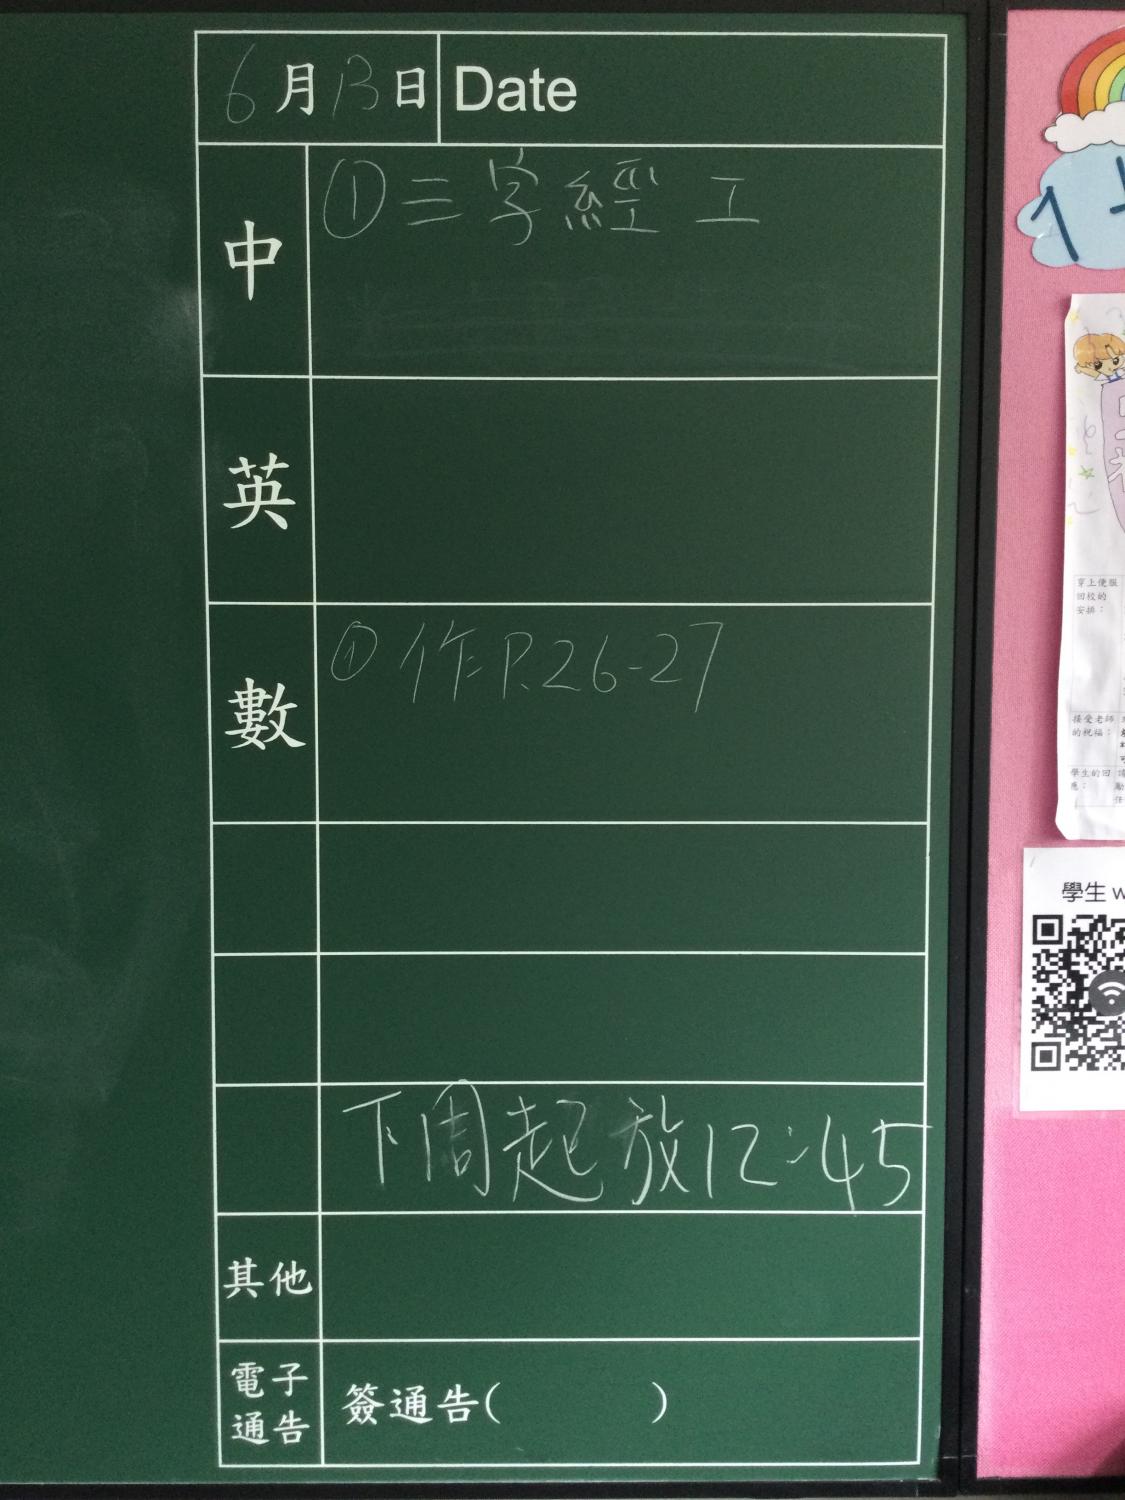 6月13日 Date
中 ①三字經工
英
數 ①作P.26-27
下周起放12:45
其他
電子通告 簽通告( )
穿上便服
回校的
安排：
接受老師
的祝福：
學生的回
應：
學生 w